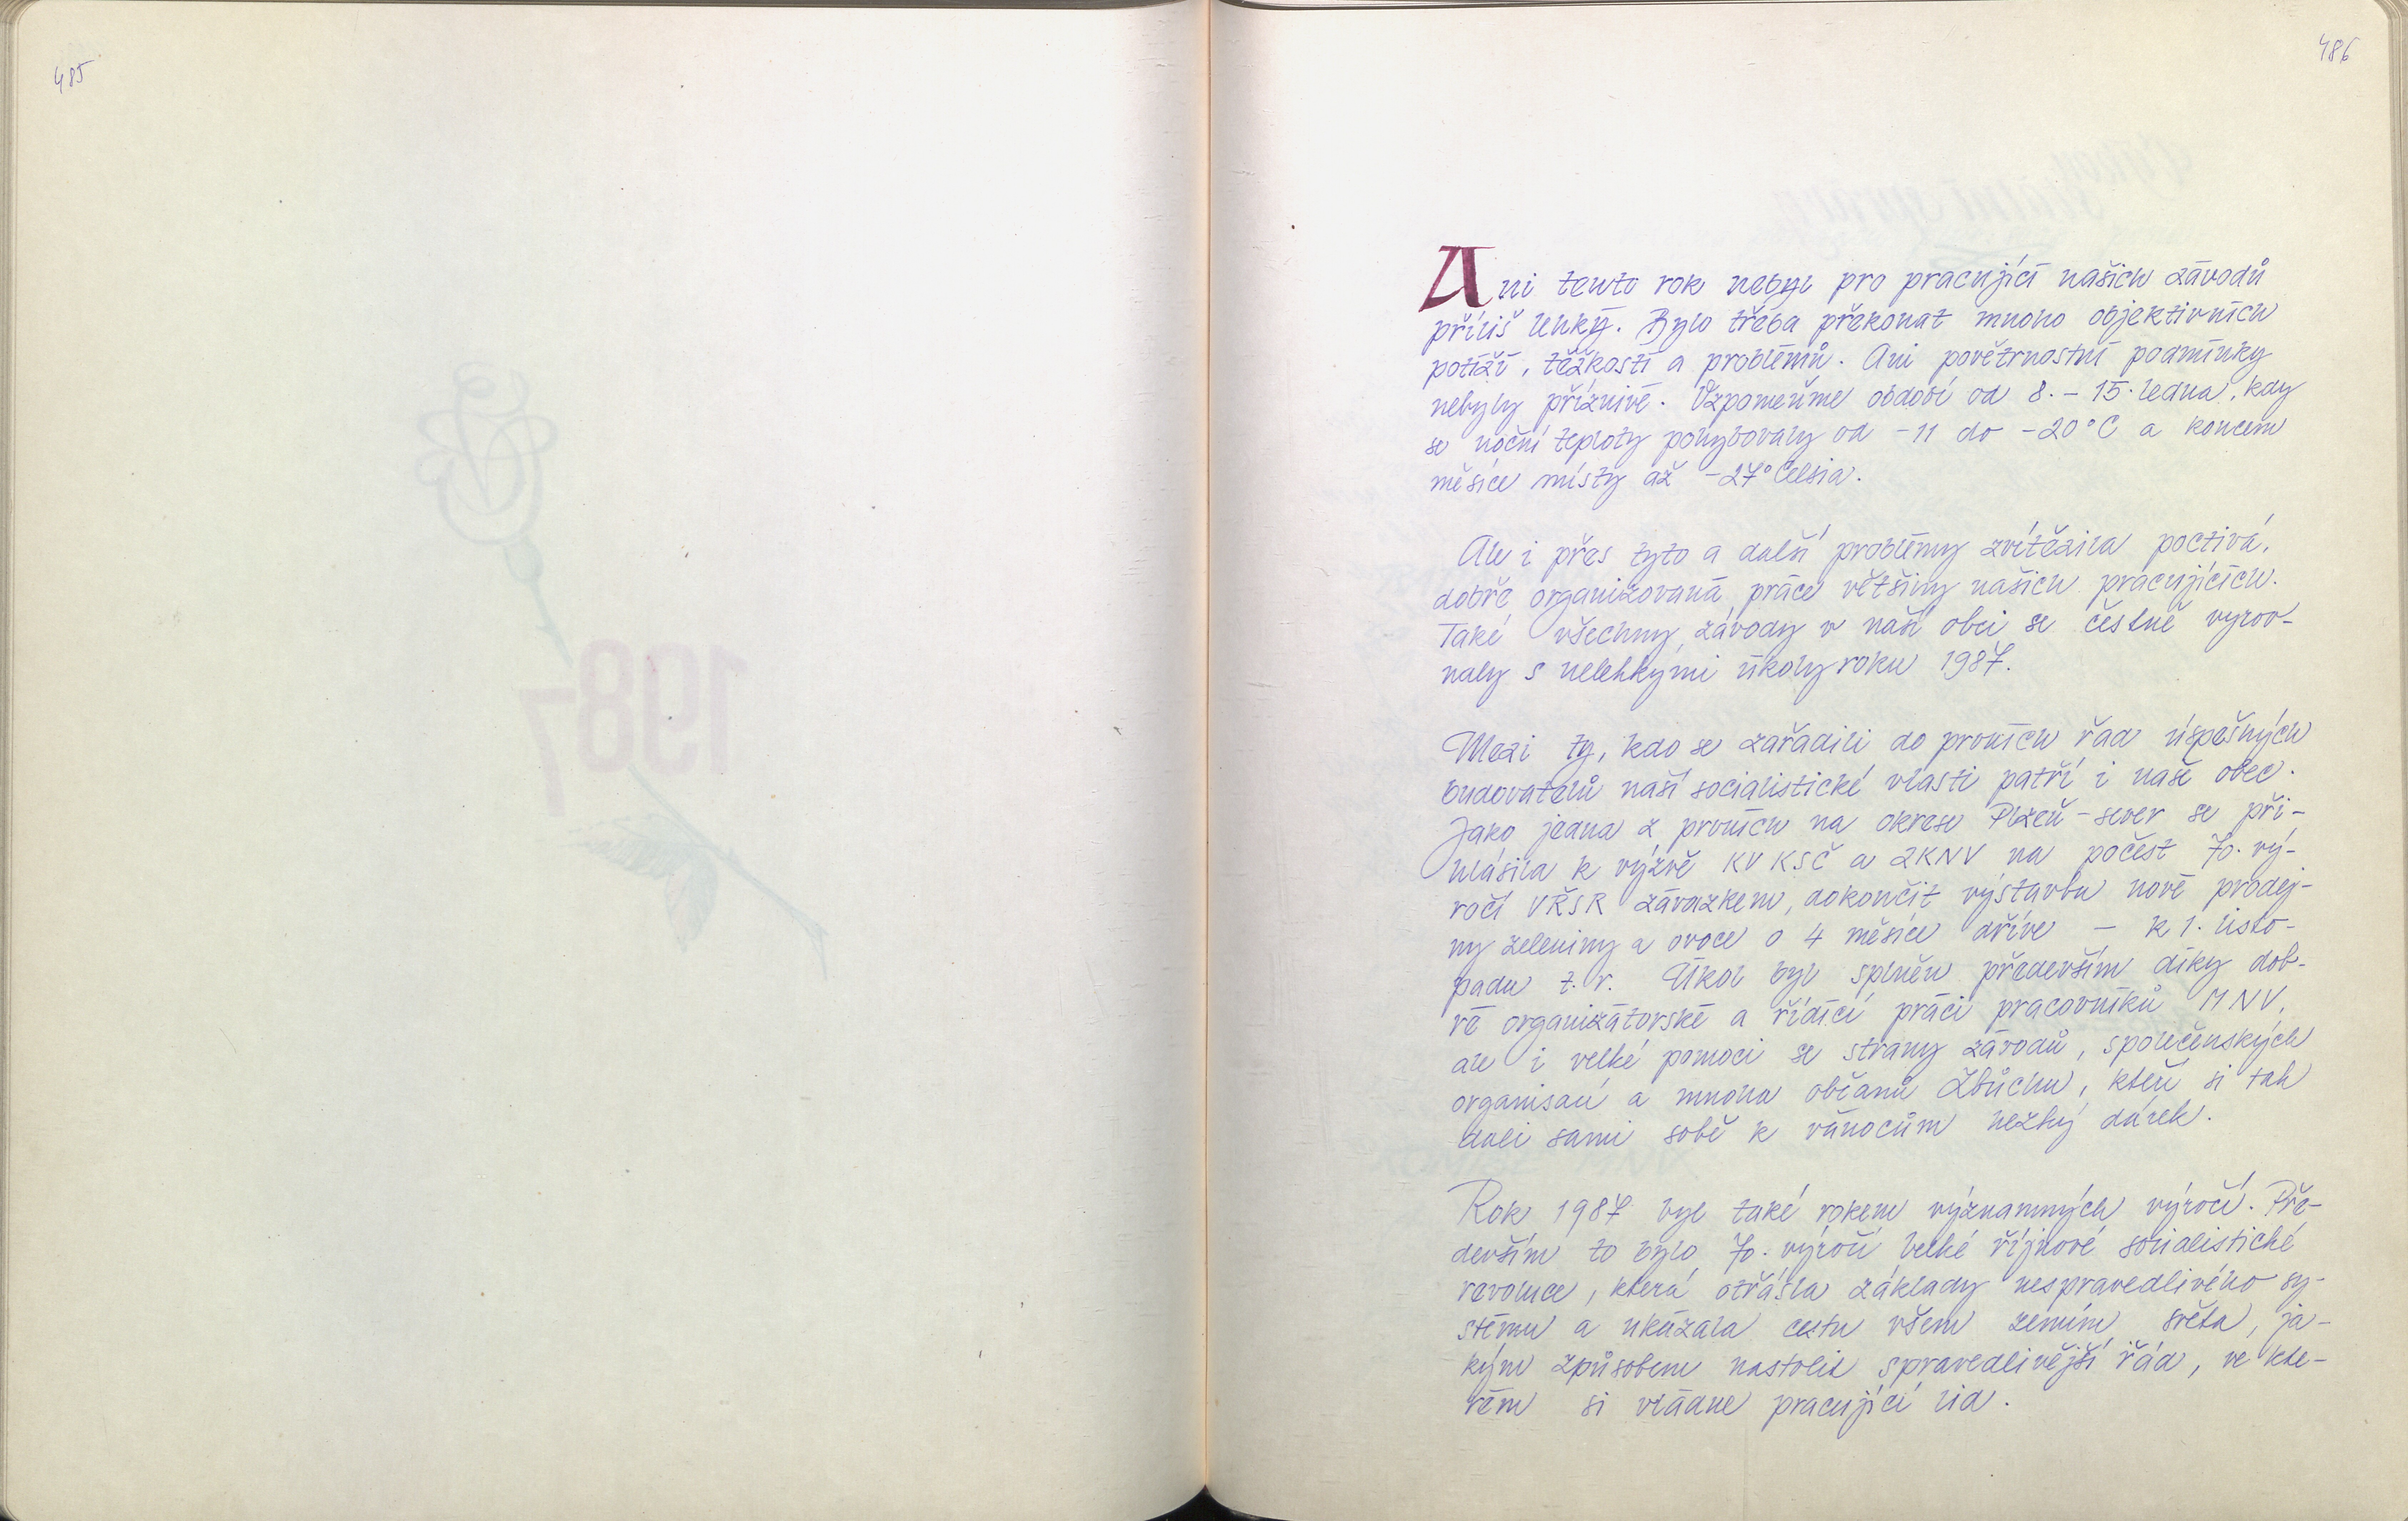 485
486
Ani tento rok nebyl pro pracující našich závodů
příliš lehký. Bylo třeba překonat mnoho objektivních
potíží, těžkostí a problémů. Ani povětrnostní podmínky
nebyly příznivé. Vzpomeňme období od 8. - 15. ledna, kdy
se noční teploty pohybovaly od -11 do -20°C a koncem
měsíce místy až -27° Celsia.
Ale i přes tyto a další problémy zvítězila poctivá,
dobře organizovaná práce většiny našich pracujících.
Také všechny závody v naší obci se čestně vyrov-
naly s nelehkými úkoly roku 1987.
Mezi ty, kdo se zařadili do prvních řad úspěšných
budovatelů naší socialistické vlasti patří i naše obec.
Jako jedna z prvních na okrese Plzeň-sever se při-
hlásila k výzvě KV KSČ a ZKNV na počest 70. vý-
ročí VŘSR závazkem, dokončit výstavbu nové prodej-
ny zeleniny a ovoce o 4 měsíce dříve - k 1. listo-
padu t.r. Úkol byl splněn především díky dob-
ré organizátorské a řídící práci pracovníků MNV,
ale i velké pomoci se strany závodů, společenských
organisací a mnoha občanů Zbůchu, kteří si tak
dali sami sobě k vánocům hezký dárek.
Rok 1987 byl také rokem významných výročí. Pře-
devším to bylo 70. výročí Velké říjnové socialistické
revoluce, která otřásla základy nespravedlivého sy-
stému a ukázala cestu všem zemím světa, ja-
kým způsobem nastolit spravedlivější řád, ve kte-
rém si vládne pracující lid.